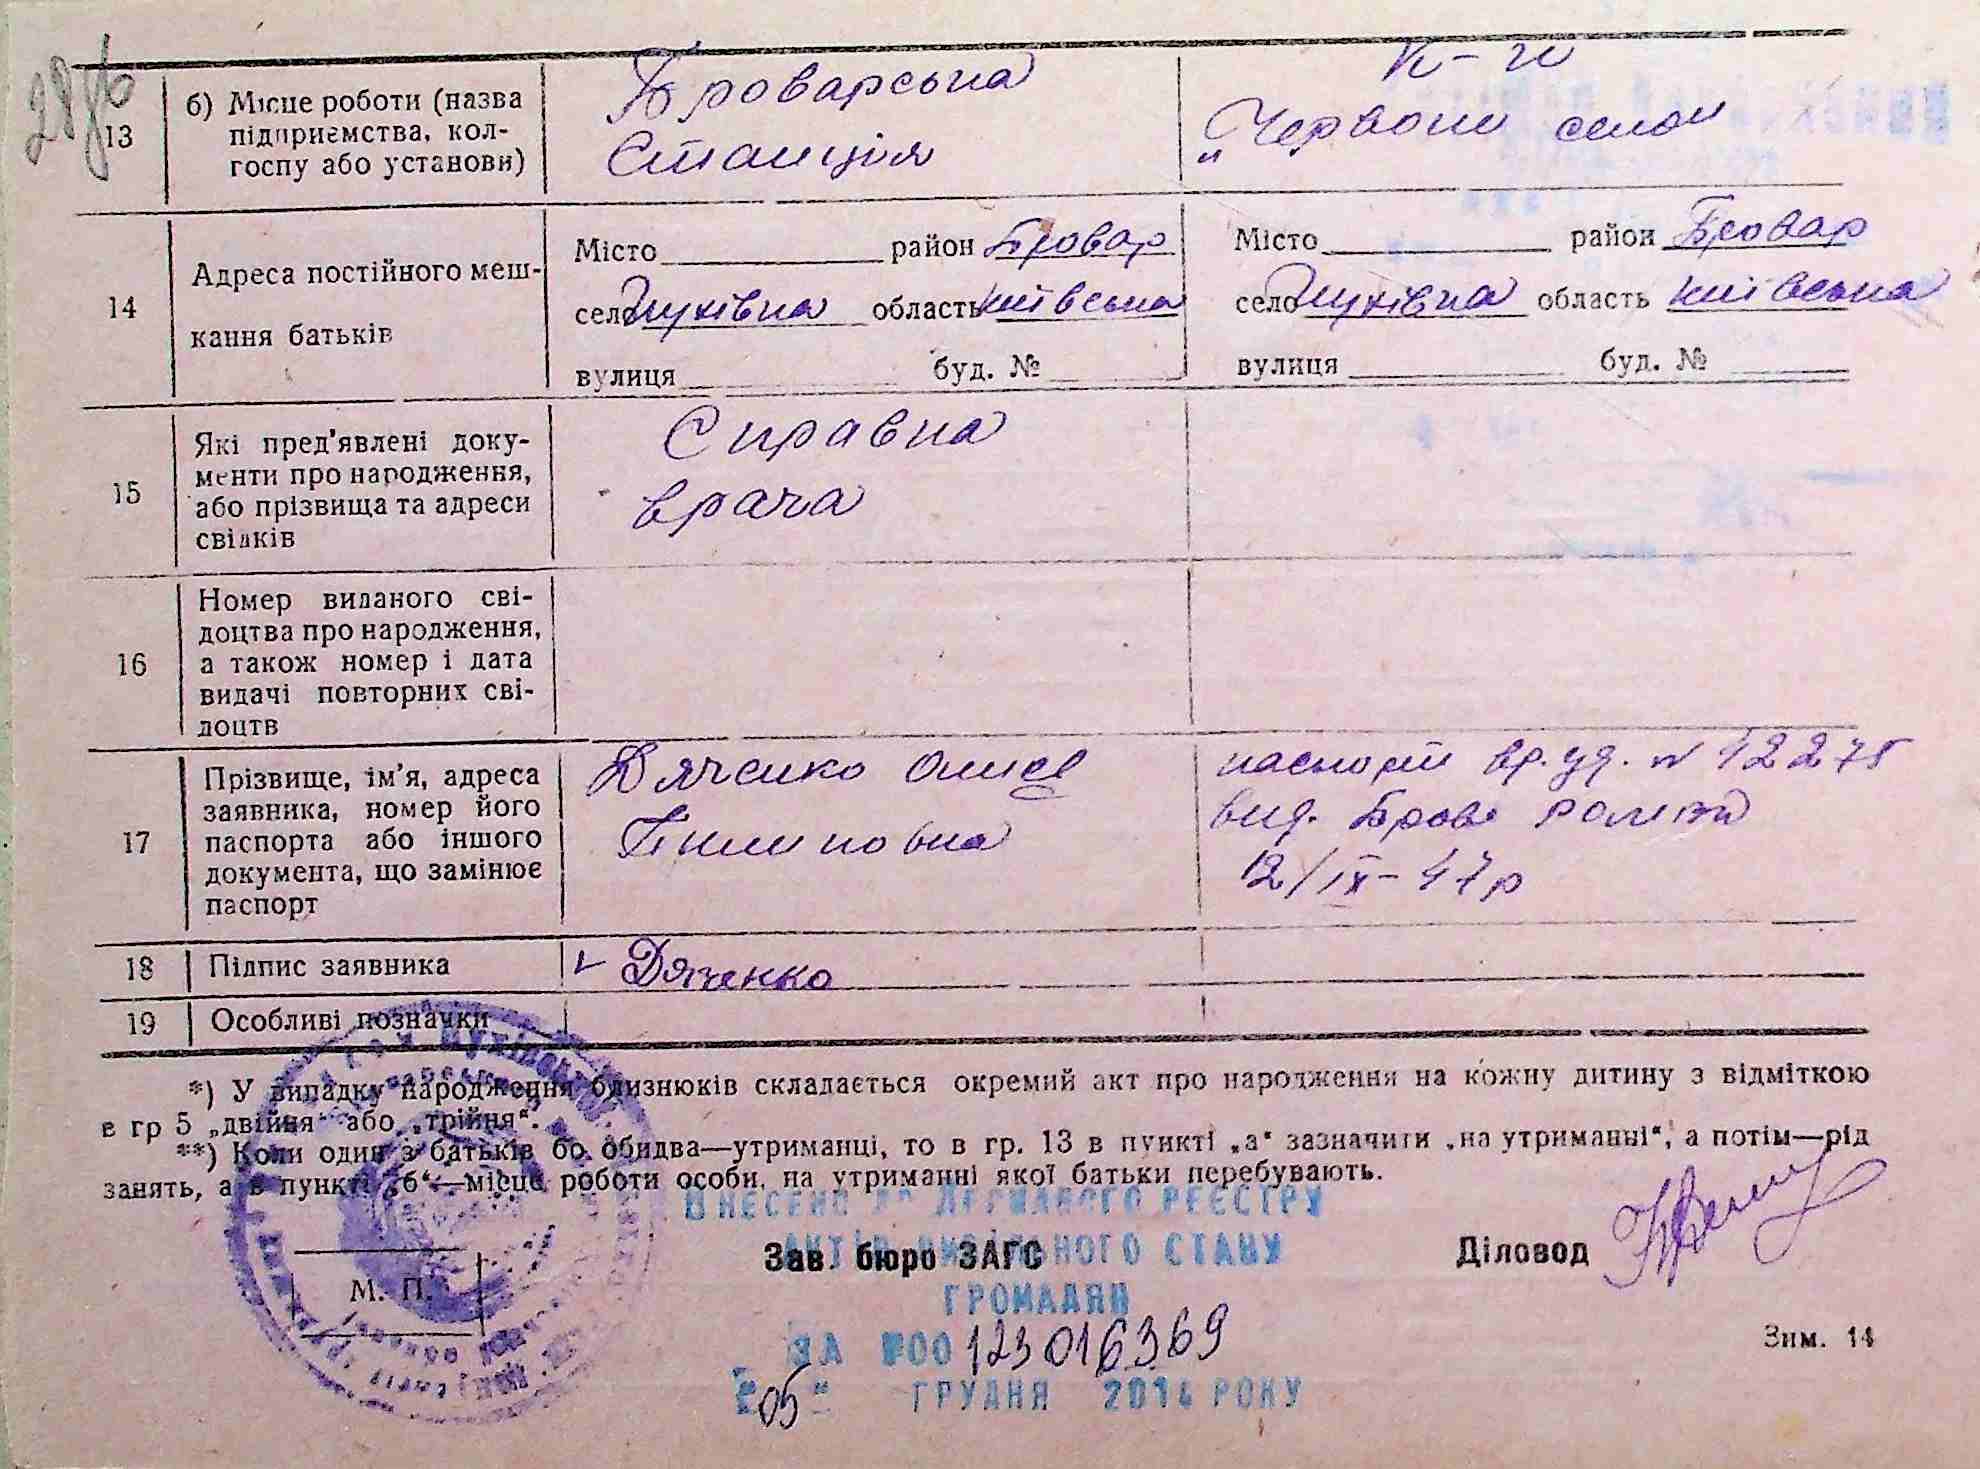 28
13
б) Місце роботи (назва
підприємства, кол-
госпу або установи)
Броварська
Станція
К-п
„Червоний село"
14
Адреса постійного меш-
кання батьків
Місто район Бровар
село Пухівка область Київська
вулиця буд. №
Місто район Бровар
село Пухівка область Київська
вулиця буд. №
15
Які пред'явлені доку-
менти про народження,
або прізвища та адреси
свідків
Справка
врача
16
Номер виданого сві-
доцтва про народження,
а також номер і дата
видачі повторних сві-
доцтв
17
Прізвище, ім'я, адреса
заявника, номер його
паспорта або іншого
документа, що замінює
паспорт
Дяченко
Пилиповна
паспорт вр. уд. № 42275
вид. Бров.
12/IX-47р
18
Підпис заявника
Дяченко
19
Особливі позначки
*) У випадку народження близнюків складається окремий акт про народження на кожну дитину з відміткою
в гр 5 „двійня" або „трійня".
**) Коли один з батьків бо обидва—утриманці, то в гр. 13 в пункті „а" зазначити „на утриманні", а потім—рід
занять, а в пункті „б"—місце роботи особи, на утриманні якої батьки перебувають.
ВНЕСЕНО ДО ДЕРЖАВНОГО РЕЄСТРУ
АКТІВ ЦИВІЛЬНОГО СТАНУ
ГРОМАДЯН
Зав. бюро ЗАГС
Діловод
М. П.
ЗА №00123016369
"05" ГРУДНЯ 2014 РОКУ
Зим. 14